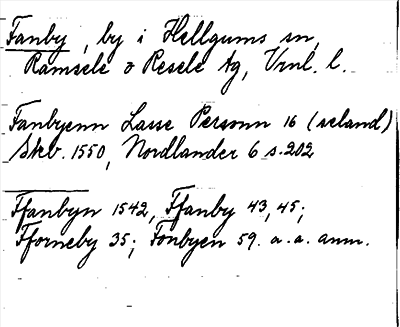 Fanby, by i Hellgums sn,
Ramsele o Resele tg, Vrnl. l.
Fanbyenn Lasse Personn 16 (seland)
Skb. 1550, Nordlander 6 s. 202
Ffanbyn 1542, Ffanby 43, 45;
Fforneby 35; Fonbyen 59. a. a. anm.